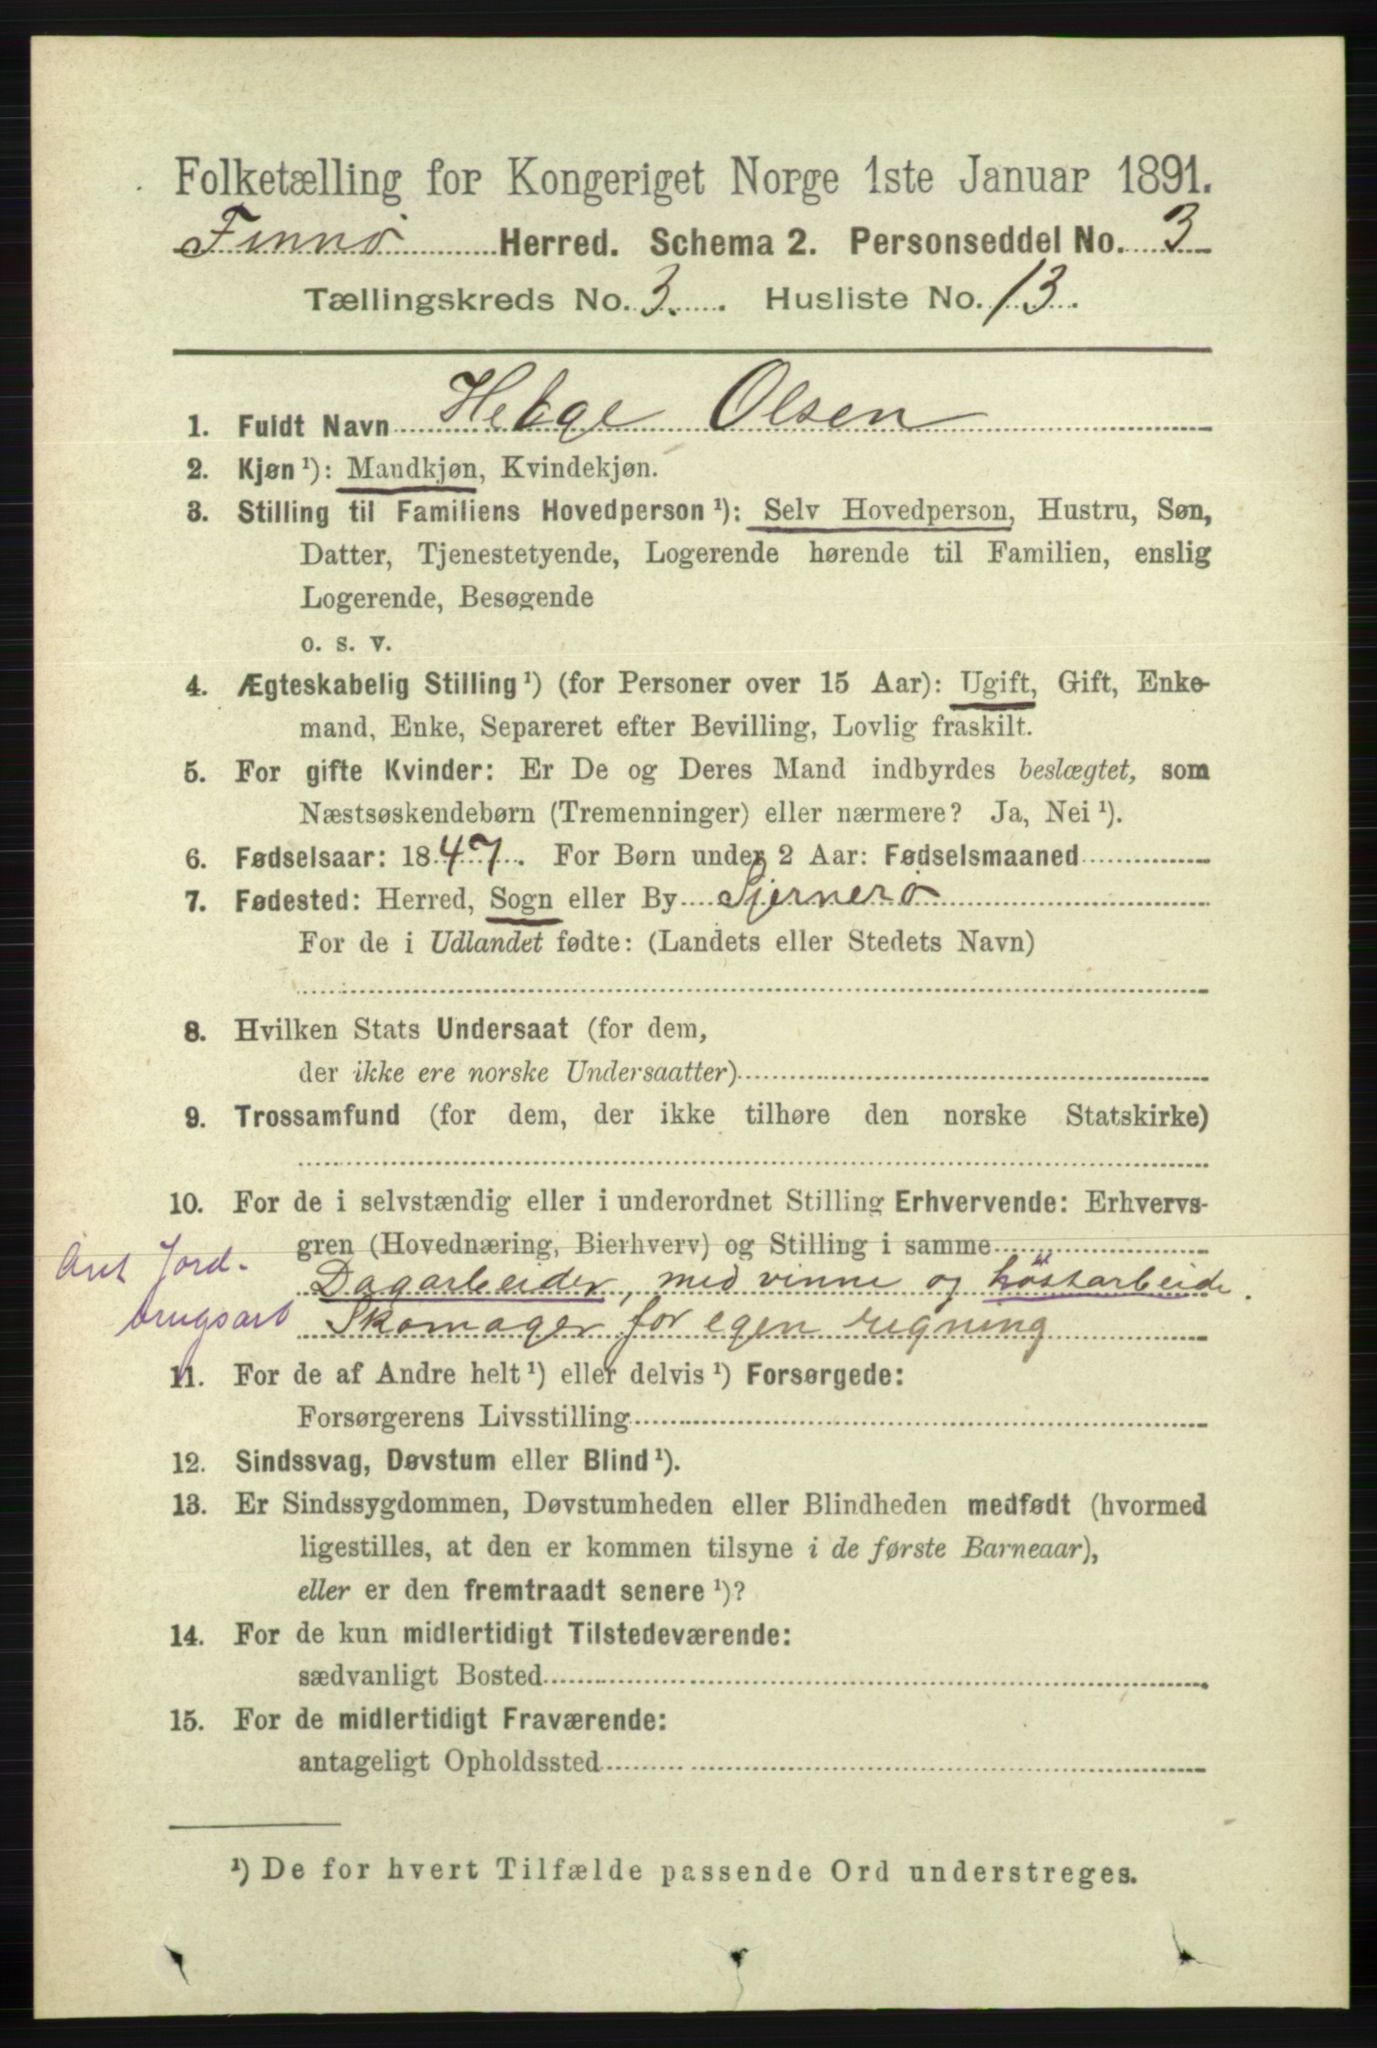 Folketælling for Kongeriget Norge 1ste Januar 1891.
Finnö Herred. Schema 2. Personseddel No. 3
Tællingskreds No. 3. Husliste No. 13.
1. Fuldt Navn Helge Olsen
2. Kjøn ¹): Mandkjøn, Kvindekjøn.
3. Stilling til Familiens Hovedperson ¹): Selv Hovedperson, Hustru, Søn,
Datter, Tjenestetyende, Logerende hørende til Familien, enslig
Logerende, Besøgende
o. s. v.
4. Ægteskabelig Stilling ¹) (for Personer over 15 Aar): Ugift, Gift, Enke-
mand, Enke, Separeret efter Bevilling, Lovlig fraskilt.
5. For gifte Kvinder: Er De og Deres Mand indbyrdes beslægtet, som
Næstsøskendebørn (Tremenninger) eller nærmere? Ja, Nei ¹).
6. Fødselsaar: 1847. For Børn under 2 Aar: Fødselsmaaned
7. Fødested: Herred, Sogn eller By Sjernerö
For de i Udlandet fødte: (Landets eller Stedets Navn)
8. Hvilken Stats Undersaat (for dem,
der ikke ere norske Undersaatter)
9. Trossamfund (for dem, der ikke tilhøre den norske Statskirke)
10. For de i selvstændig eller i underordnet Stilling Erhvervende: Erhvervs-
gren (Hovednæring, Bierhverv) og Stilling i samme
Jord-
Dagarbeider, med vinne og höstarbeide.
brugsarb
Skomager for egen regning
11. For de af Andre helt ¹) eller delvis ¹) Forsørgede:
Forsørgerens Livsstilling
12. Sindssvag, Døvstum eller Blind ¹).
13. Er Sindssygdommen, Døvstumheden eller Blindheden medfødt (hvormed
ligestilles, at den er kommen tilsyne i de første Barneaar),
eller er den fremtraadt senere ¹)?
14. For de kun midlertidigt Tilstedeværende:
sædvanligt Bosted
15. For de midlertidigt Fraværende:
antageligt Opholdssted
¹) De for hvert Tilfælde passende Ord understreges.